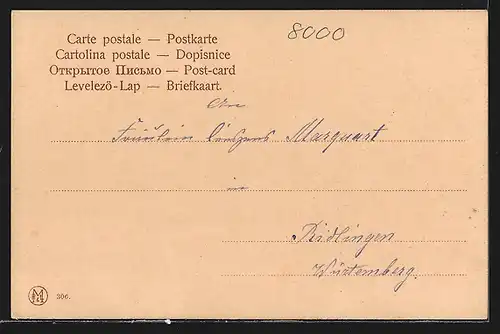 8000
Carte postale — Postkarte
Cartolina postale — Dopisnice
Открытое Письмо — Post-card
Levelező-Lap — Briefkaart.
An
Fräulein Marquart
in
Ridlingen
Würtemberg.
306.